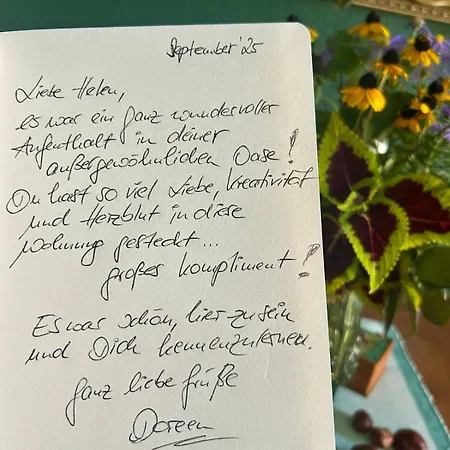 September '25
Liebe Helen,
es war ein ganz wundervoller
Aufenthalt in deiner
außergewöhnlichen Oase!
Du hast so viel Liebe, Kreativität
und Herzblut in diese
Wohnung gesteckt...
großes Kompliment!
Es war schön, hier zu sein
und Dich kennenzulernen.
Ganz liebe Grüße
Doreen